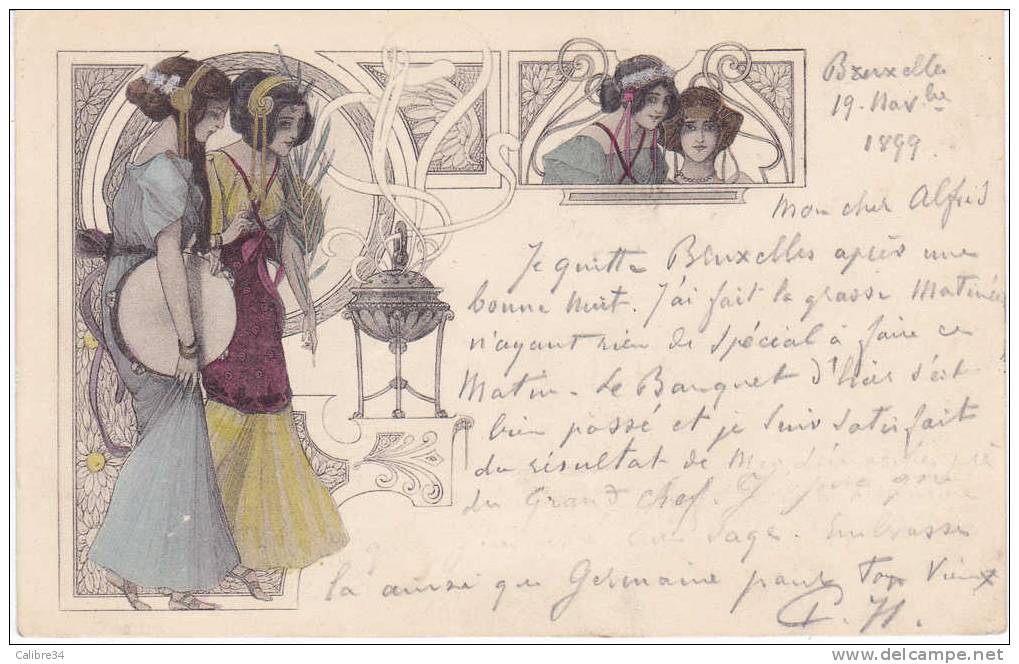 Bruxelles
19. Novbre
1899
Mon cher Alfred
Je quitte Bruxelles après une
bonne nuit. J'ai fait la grasse Matinée
n'ayant rien de spécial à faire ce
Matin. Le Banquet d'hier s'est
bien passé et je suis satisfait
du résultat de Mes
du Grand chef. J
sage. Embrasse
la ainsi que Germaine pour Ton Vieux
Calibre34
www.delcampe.net